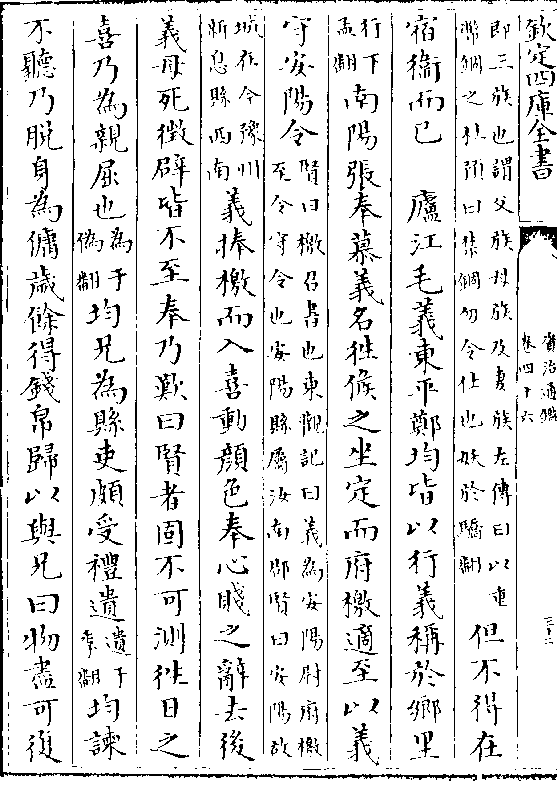 欽定四庫全書
資治通鑑
卷四十六
三十二
即三族也謂父族母族及妻族左傳曰以重
幣錮之杜預曰禁錮勿令仕也妖於驕翻
但不得在
宿衛而已　廬江毛義東平鄭均皆以行義稱於鄉里
行下
孟翻
南陽張奉慕義名往候之坐定而府檄適至以義
守安陽令
賢曰檄召書也東觀記曰義為安陽尉府檄
至令守令也安陽縣屬汝南郡賢曰安陽故
城在今豫州
新息縣西南
義捧檄而入喜動顏色奉心賤之辭去後
義母死徵辟皆不至奉乃歎曰賢者固不可測往日之
喜乃為親屈也
為于
偽翻
均兄為縣吏頗受禮遺
遺于
季翻
均諫
不聽乃脱身為傭歲餘得錢帛歸以與兄曰物盡可復